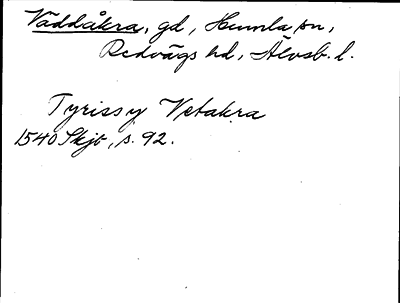 Väddåkra, gd, Humla sn,
Redvägs hd, Älvsb. l.
Tyrissy Vetakra
1540 Skjb, s. 92.